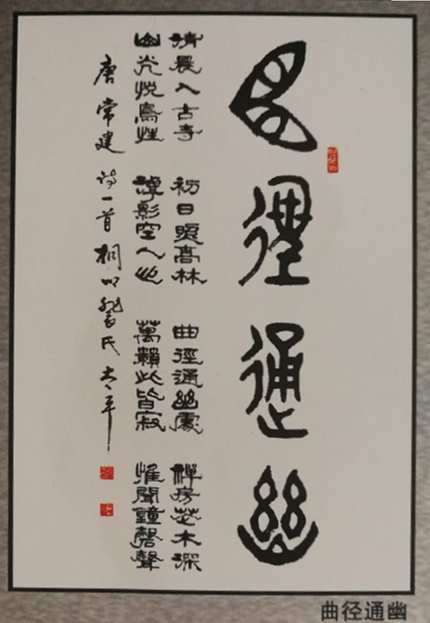 曲徑通幽
清晨入古寺 初日照高林 曲徑通幽處 禪房花木深
山光悅鳥性 潭影空人心 萬籟此皆寂 惟聞鐘磬聲
唐 常建 詩一首 桐
曲径通幽